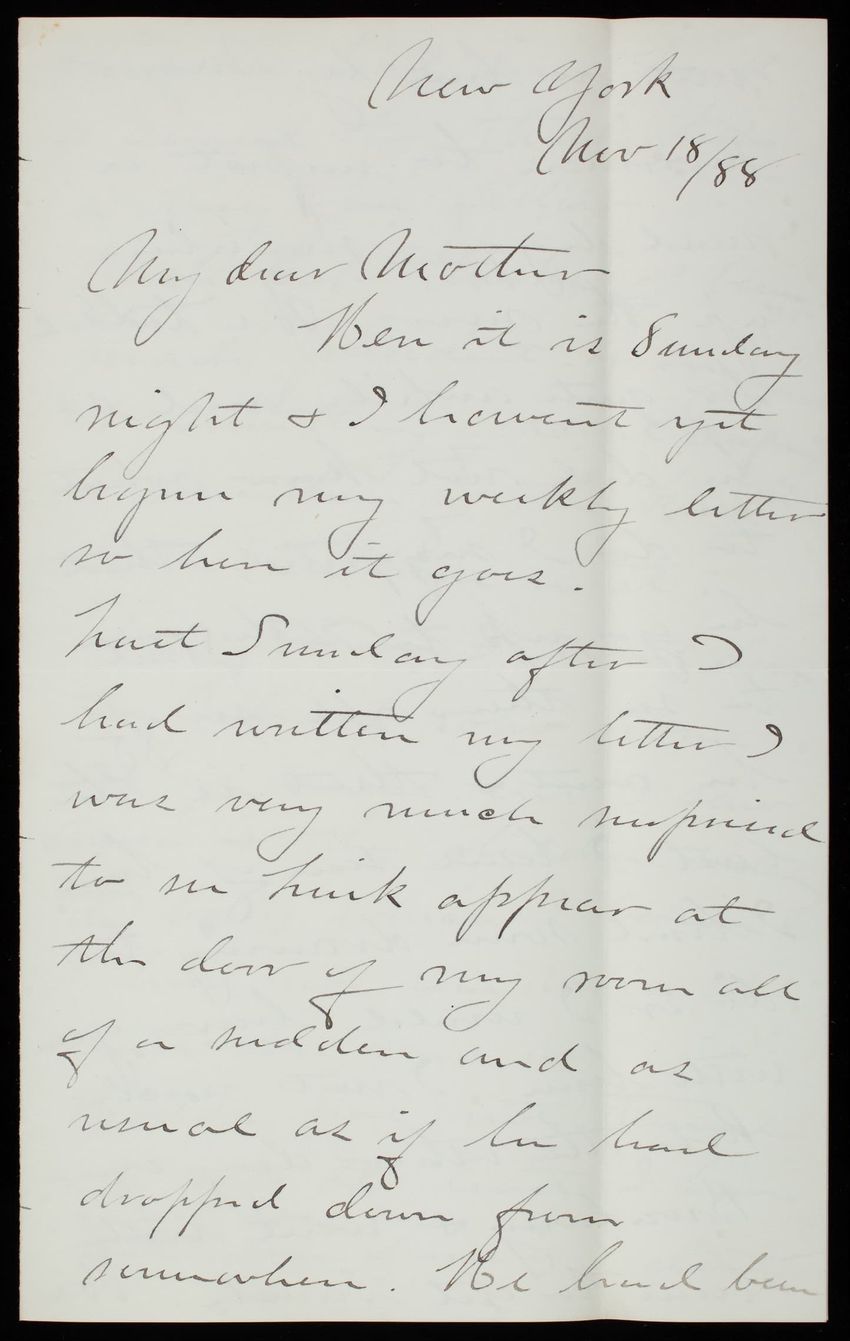 New York
Nov 18/88
My dear Mother
Here it is Sunday
night & I havent yet
begun my weekly letter
so here it goes.
Last Sunday after I
had written my letter I
was very much surprised
to see appear at
the door of my room all
of a sudden and as
usual as if he had
dropped down from
somewhere. He had been